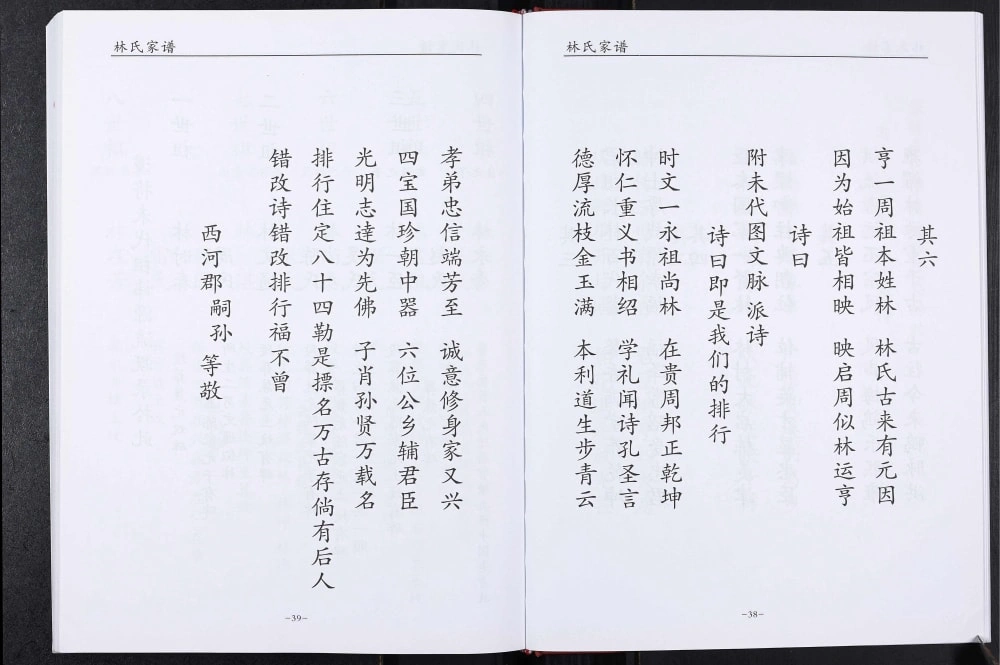 林氏家谱
其六
亨一周祖本姓林 林氏古来有元因
因为始祖皆相映 映启周似林运亨
诗曰
附未代图文脉派诗
诗曰即是我们的排行
时文一永祖尚林 在贵周邦正乾坤
怀仁重义书相绍 学礼闻诗孔圣言
德厚流枝金玉满 本利道生步青云
-38-
林氏家谱
孝弟忠信端芳至 诚意修身家又兴
四宝国珍朝中器 六位公乡辅君臣
光明志達为先佛 子肖孙贤万载名
排行住定八十四勒是摽名万古存倘有后人
错改诗错改排行福不曾
西河郡嗣孙等敬
-39-